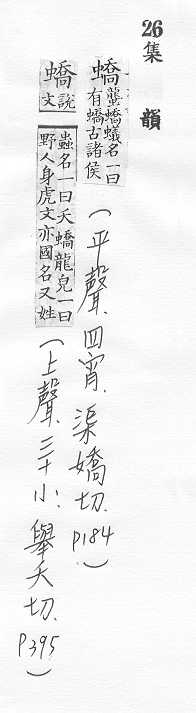 26 集 韻
蟜 蠪蟜蟻名一曰
有蟜古諸侯
(平聲.四宵.渠嬌切.P184)
蟜 說文
蟲名一曰夭蟜龍皃一曰
野人身虎文亦國名又姓
(上聲.三十小.舉夭切.P395)